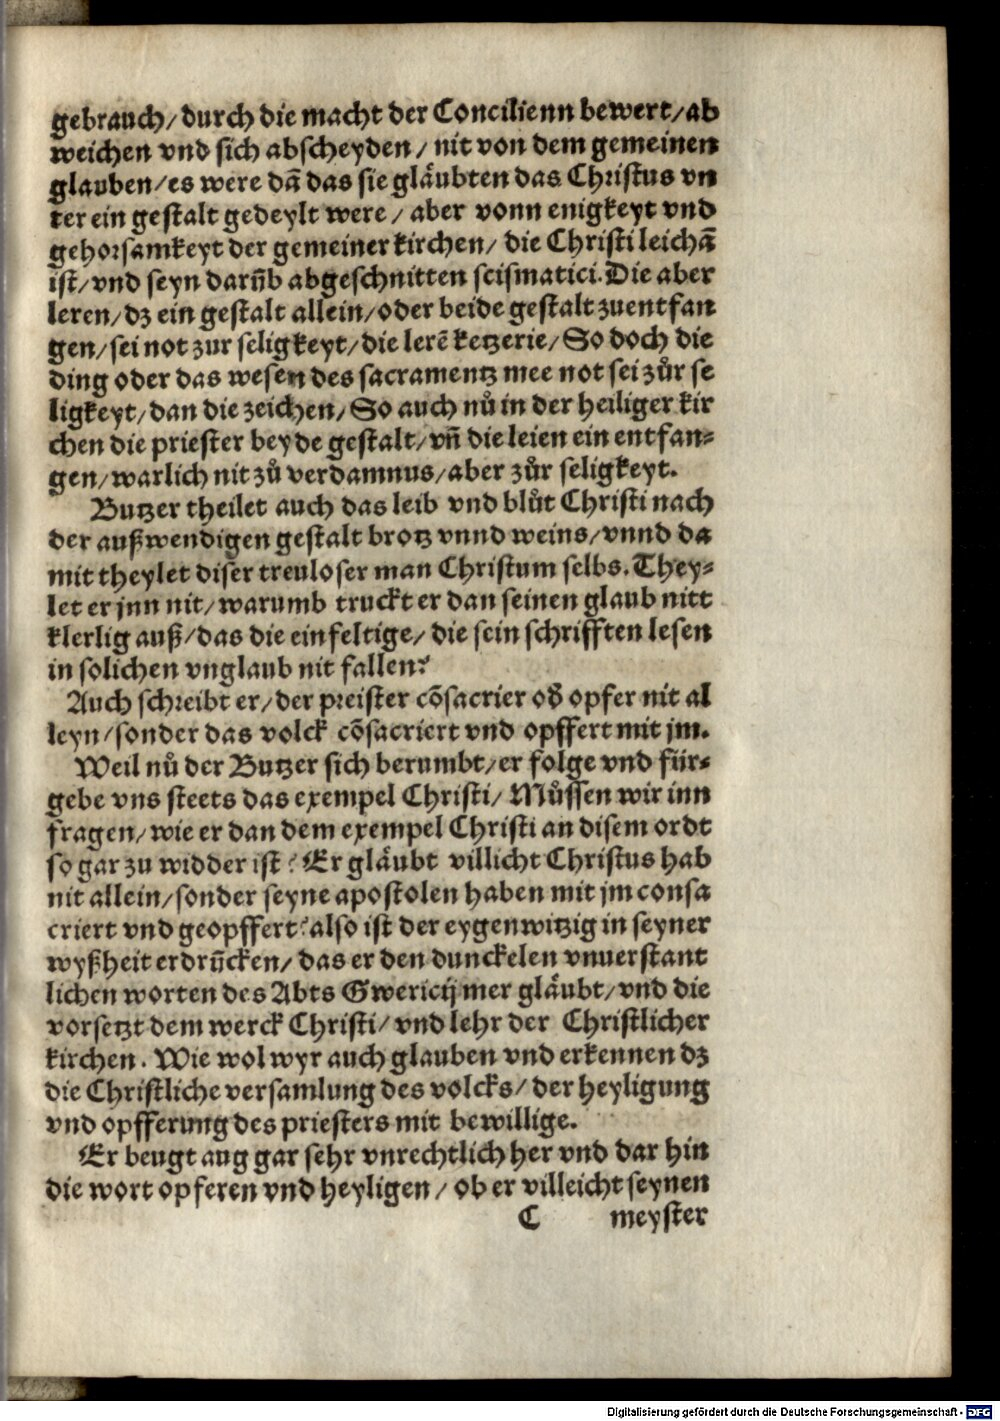 gebrauch/durch die macht der Concilienn bewert/ab
weichen vnd sich abscheyden/ nit von dem gemeinen
glauben/es were dā das sie glaͤubten das Christus vn
ter ein gestalt gedeylt were/ aber vonn enigkeyt vnd
gehorsamkeyt der gemeiner kirchen/ die Christi leichā
ist/vnd seyn darūb abgeschnitten scismatici. Die aber
leren/dz ein gestalt allein/oder beide gestalt zuentfan
gen/sei not zur seligkeyt/die lerē ketzerie/So doch die
ding oder das wesen des sacramentz mee not sei zůr se
ligkeyt/dan die zeichen/So auch nů in der heiliger kir
chen die priester beyde gestalt/vñ die leien ein entfan⸗
gen/warlich nit zů verdamnus/aber zůr seligkeyt.
Butzer theilet auch das leib vnd blůt Christi nach
der außwendigen gestalt brotz vnnd weins/vnnd da
mit theylet diser treuloser man Christum selbs. They⸗
let er jnn nit/warumb truckt er dan seinen glaub nitt
klerlig auß/das die einfeltige/die sein schrifften lesen
in solichen vnglaub nit fallen?
Auch schreibt er/der preister cōsacrier od̄ opfer nit al
leyn/sonder das volck cōsacriert vnd opffert mit jm.
Weil nů der Butzer sich berumbt/er folge vnd für⸗
gebe vns steets das exempel Christi/ Můssen wir inn
fragen/wie er dan dem exempel Christi an disem ordt
so gar zu widder ist? Er glaͤubt villicht Christus hab
nit allein/sonder seyne apostolen haben mit jm consa
criert vnd geopffert? also ist der eygenwitzig in seyner
wyßheit erdrücken/das er den dunckelen vnuerstant
lichen worten des Abts Gwericij mer glaͤubt/vnd die
vorsetzt dem werck Christi/vnd lehr der Christlicher
kirchen. Wie wol wyr auch glauben vnd erkennen dz
die Christliche versamlung des volcks/der heyligung
vnd opfferung des priesters mit bewillige.
Er beugt aug gar sehr vnrechtlich her vnd dar hin
die wort opferen vnd heyligen/ ob er villeicht seynen
C meyster
Digitalisierung gefördert durch die Deutsche Forschungsgemeinschaft - DFG